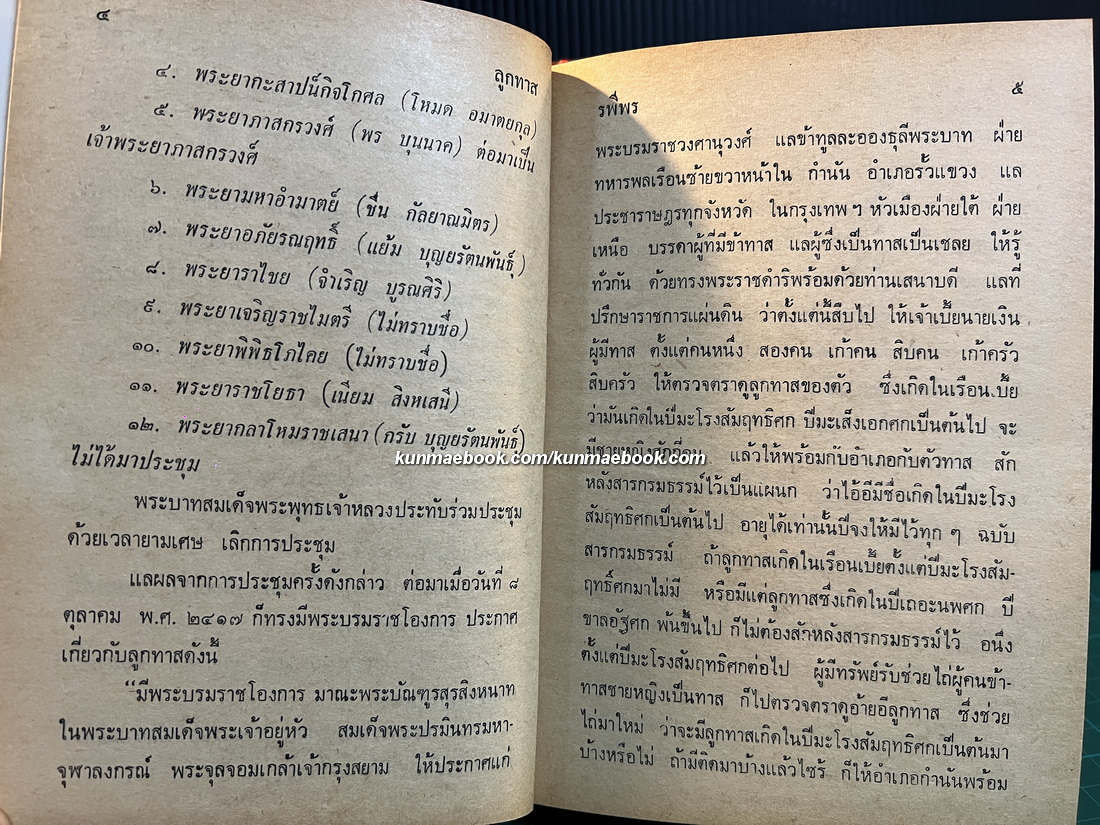 ๔
ลูกทาส
๔. พระยากะสาปน์กิจโกศล (โหมด อมาตยกุล)
๕. พระยาภาสกรวงศ์ (พร บุนนาค) ต่อมาเป็น
เจ้าพระยาภาสกรวงศ์
๖. พระยามหาอำมาตย์ (ชื่น กัลยาณมิตร)
๗. พระยาอภัยรณฤทธิ์ (แย้ม บุญยรัตนพันธุ์)
๘. พระยาราไชย (จำเริญ บูรณศิริ)
๙. พระยาเจริญราชไมตรี (ไม่ทราบชื่อ)
๑๐. พระยาพิพิธโภไคย (ไม่ทราบชื่อ)
๑๑. พระยาราชโยธา (เนียม สิงหเสนี)
๑๒. พระยากลาโหมราชเสนา (กรับ บุญยรัตนพันธุ์)
ไม่ได้มาประชุม
พระบาทสมเด็จพระพุทธเจ้าหลวงประทับร่วมประชุม
ด้วยเวลายามเศษ เลิกการประชุม
แลผลจากการประชุมครั้งดังกล่าว ต่อมาเมื่อวันที่ ๘
ตุลาคม พ.ศ. ๒๔๑๗ ก็ทรงมีพระบรมราชโองการ ประกาศ
เกี่ยวกับลูกทาสดังนี้
“มีพระบรมราชโองการ มาณะพระบัณฑูรสุรสิงหนาท
ในพระบาทสมเด็จพระเจ้าอยู่หัว สมเด็จพระปรมินทรมหา-
จุฬาลงกรณ์ พระจุลจอมเกล้าเจ้ากรุงสยาม ให้ประกาศแก่
๕
รพีพร
พระบรมราชวงศานุวงศ์ แลข้าทูลละอองธุลีพระบาท ฝ่าย
ทหารพลเรือนซ้ายขวาหน้าใน กำนัน อำเภอรั้วแขวง แล
ประชาราษฎรทุกจังหวัด ในกรุงเทพ ฯ หัวเมืองฝ่ายใต้ ฝ่าย
เหนือ บรรดาผู้ที่มีข้าทาส แลผู้ซึ่งเป็นทาสเป็นเชลย ให้รู้
ทั่วกัน ด้วยทรงพระราชดำริพร้อมด้วยท่านเสนาบดี แลที่
ปรึกษาราชการแผ่นดิน ว่าตั้งแต่นี้สืบไป ให้เจ้าเบี้ยนายเงิน
ผู้มีทาส ตั้งแต่คนหนึ่ง สองคน เก้าคน สิบคน เก้าครัว
สิบครัว ให้ตรวจตราดูลูกทาสของตัว ซึ่งเกิดในเรือน
ว่ามันเกิดในปีมะโรงสัมฤทธิศก ปีมะเส็งเอกศกเป็นต้นไป จะ
มีชายหญิงสักกี่คน แล้วให้พร้อมกับอำเภอกับตัวทาส สัก
kunmaebook.com/kunmaebook.com
หลังสารกรมธรรม์ไว้เป็นแผนก ว่าไอ้อีมีชื่อเกิดในปีมะโรง
สัมฤทธิศกเป็นต้นไป อายุได้เท่านั้นปีจงให้มีไว้ทุก ๆ ฉบับ
สารกรมธรรม์ ถ้าลูกทาสเกิดในเรือนเบี้ยตั้งแต่ปีมะโรงสัม-
ฤทธิ์ศกมาไม่มี หรือมีแต่ลูกทาสซึ่งเกิดในปีเถอะนพศก ปี
ขาลอัฐศก พ้นขึ้นไป ก็ไม่ต้องสักหลังสารกรมธรรม์ไว้ อนึ่ง
ตั้งแต่ปีมะโรงสัมฤทธิศกต่อไป ผู้มีทรัพย์รับช่วยไถ่ผู้คนข้า-
ทาสชายหญิงเป็นทาส ก็ไปตรวจตราดูอ้ายอีลูกทาส ซึ่งช่วย
ไถ่มาใหม่ ว่าจะมีลูกทาสเกิดในปีมะโรงสัมฤทธิศกเป็นต้นมา
บ้างหรือไม่ ถ้ามีติดมาบ้างแล้วไซร้ ก็ให้อำเภอกำนันพร้อม